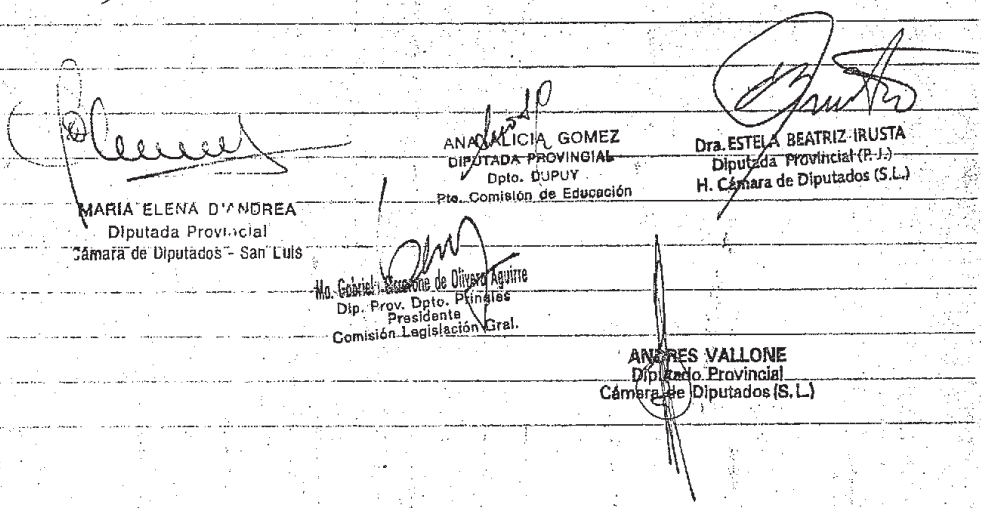 MARIA ELENA D'ANDREA
Diputada Provincial
Cámara de Diputados - San Luis
ANA ALICIA GOMEZ
DIPUTADA PROVINCIAL
Dpto. DUPUY
Pte. Comisión de Educación
Dra. ESTELA BEATRIZ IRUSTA
Diputada Provincial (P.J.)
H. Cámara de Diputados (S.L.)
Ma. Gabriela de Olivero Aguirre
Dip. Prov. Dpto. Pringles
Presidente
Comisión Legislación Gral.
ANDRES VALLONE
Diputado Provincial
Cámara de Diputados (S.L.)